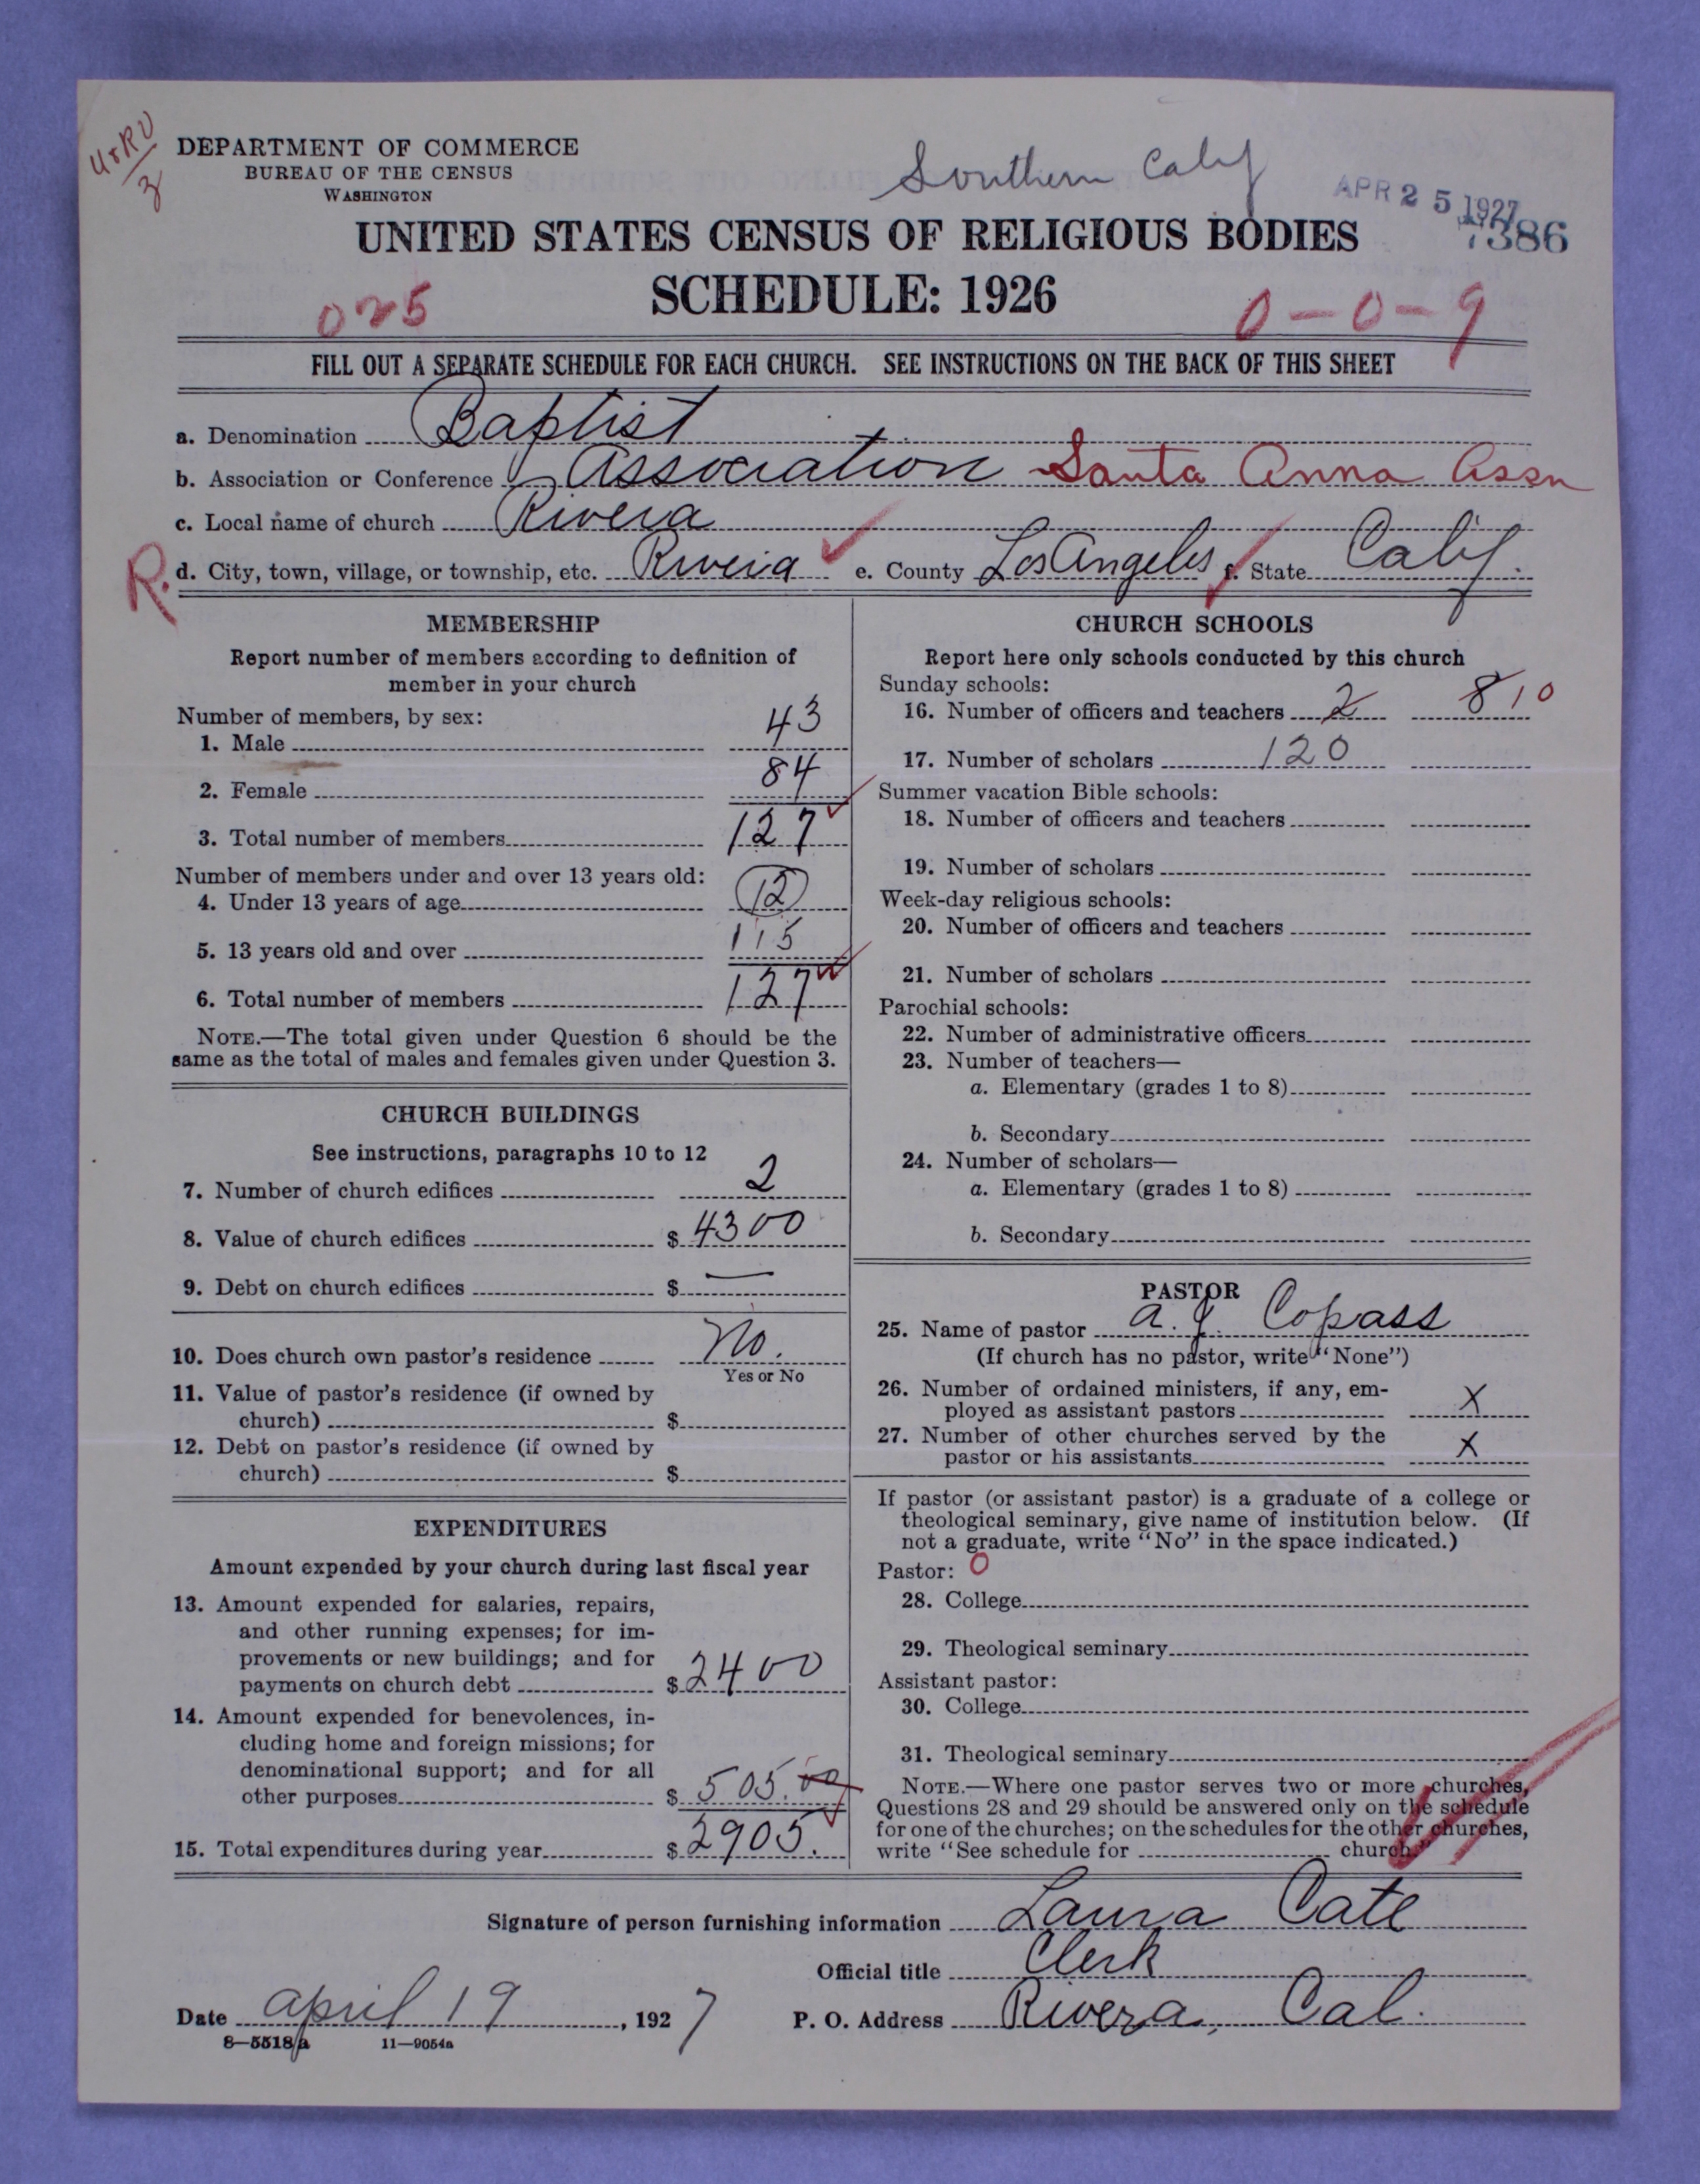 U & RV
3
DEPARTMENT OF COMMERCE
BUREAU OF THE CENSUS
WASHINGTON
Southern Calif
APR 25 1927
7386
UNITED STATES CENSUS OF RELIGIOUS BODIES
SCHEDULE: 1926
025
0-0-9
FILL OUT A SEPARATE SCHEDULE FOR EACH CHURCH. SEE INSTRUCTIONS ON THE BACK OF THIS SHEET
a. Denomination Baptist
b. Association or Conference Association Santa Anna Assn
c. Local name of church Rivera
R. d. City, town, village, or township, etc. Rivera e. County Los Angeles f. State Calif.
MEMBERSHIP
Report number of members according to definition of
member in your church
Number of members, by sex:
1. Male 43
2. Female 84
3. Total number of members 127
Number of members under and over 13 years old:
4. Under 13 years of age 12
5. 13 years old and over 115
6. Total number of members 127
NOTE.—The total given under Question 6 should be the
same as the total of males and females given under Question 3.
CHURCH BUILDINGS
See instructions, paragraphs 10 to 12
7. Number of church edifices 2
8. Value of church edifices $ 4300
9. Debt on church edifices $ —
10. Does church own pastor's residence No.
Yes or No
11. Value of pastor's residence (if owned by
church) $
12. Debt on pastor's residence (if owned by
church) $
EXPENDITURES
Amount expended by your church during last fiscal year
13. Amount expended for salaries, repairs,
and other running expenses; for im-
provements or new buildings; and for
payments on church debt $ 2400
14. Amount expended for benevolences, in-
cluding home and foreign missions; for
denominational support; and for all
other purposes $ 505.00
15. Total expenditures during year $ 2905.
CHURCH SCHOOLS
Report here only schools conducted by this church
Sunday schools:
16. Number of officers and teachers 2 8 10
17. Number of scholars 120
Summer vacation Bible schools:
18. Number of officers and teachers
19. Number of scholars
Week-day religious schools:
20. Number of officers and teachers
21. Number of scholars
Parochial schools:
22. Number of administrative officers
23. Number of teachers—
a. Elementary (grades 1 to 8)
b. Secondary
24. Number of scholars—
a. Elementary (grades 1 to 8)
b. Secondary
PASTOR
25. Name of pastor A. J. Copass
(If church has no pastor, write "None")
26. Number of ordained ministers, if any, em-
ployed as assistant pastors X
27. Number of other churches served by the
pastor or his assistants X
If pastor (or assistant pastor) is a graduate of a college or
theological seminary, give name of institution below. (If
not a graduate, write "No" in the space indicated.)
Pastor: 0
28. College
29. Theological seminary
Assistant pastor:
30. College
31. Theological seminary
NOTE.—Where one pastor serves two or more churches,
Questions 28 and 29 should be answered only on the schedule
for one of the churches; on the schedules for the other churches,
write "See schedule for church."
Signature of person furnishing information Laura Cate
Official title Clerk
Date April 19, 1927 P. O. Address Rivera, Cal.
8—5518a 11—9054a